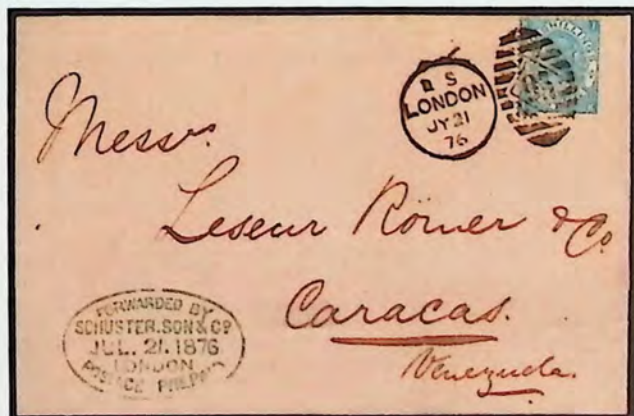 SHILLING
S
LONDON
JY 21
76
Messrs
Leseur Römer & Co
Caracas.
Venezuela.
FORWARDED BY
SCHUSTER, SON & CO
JUL. 21. 1876
LONDON
POSTAGE PREPAID